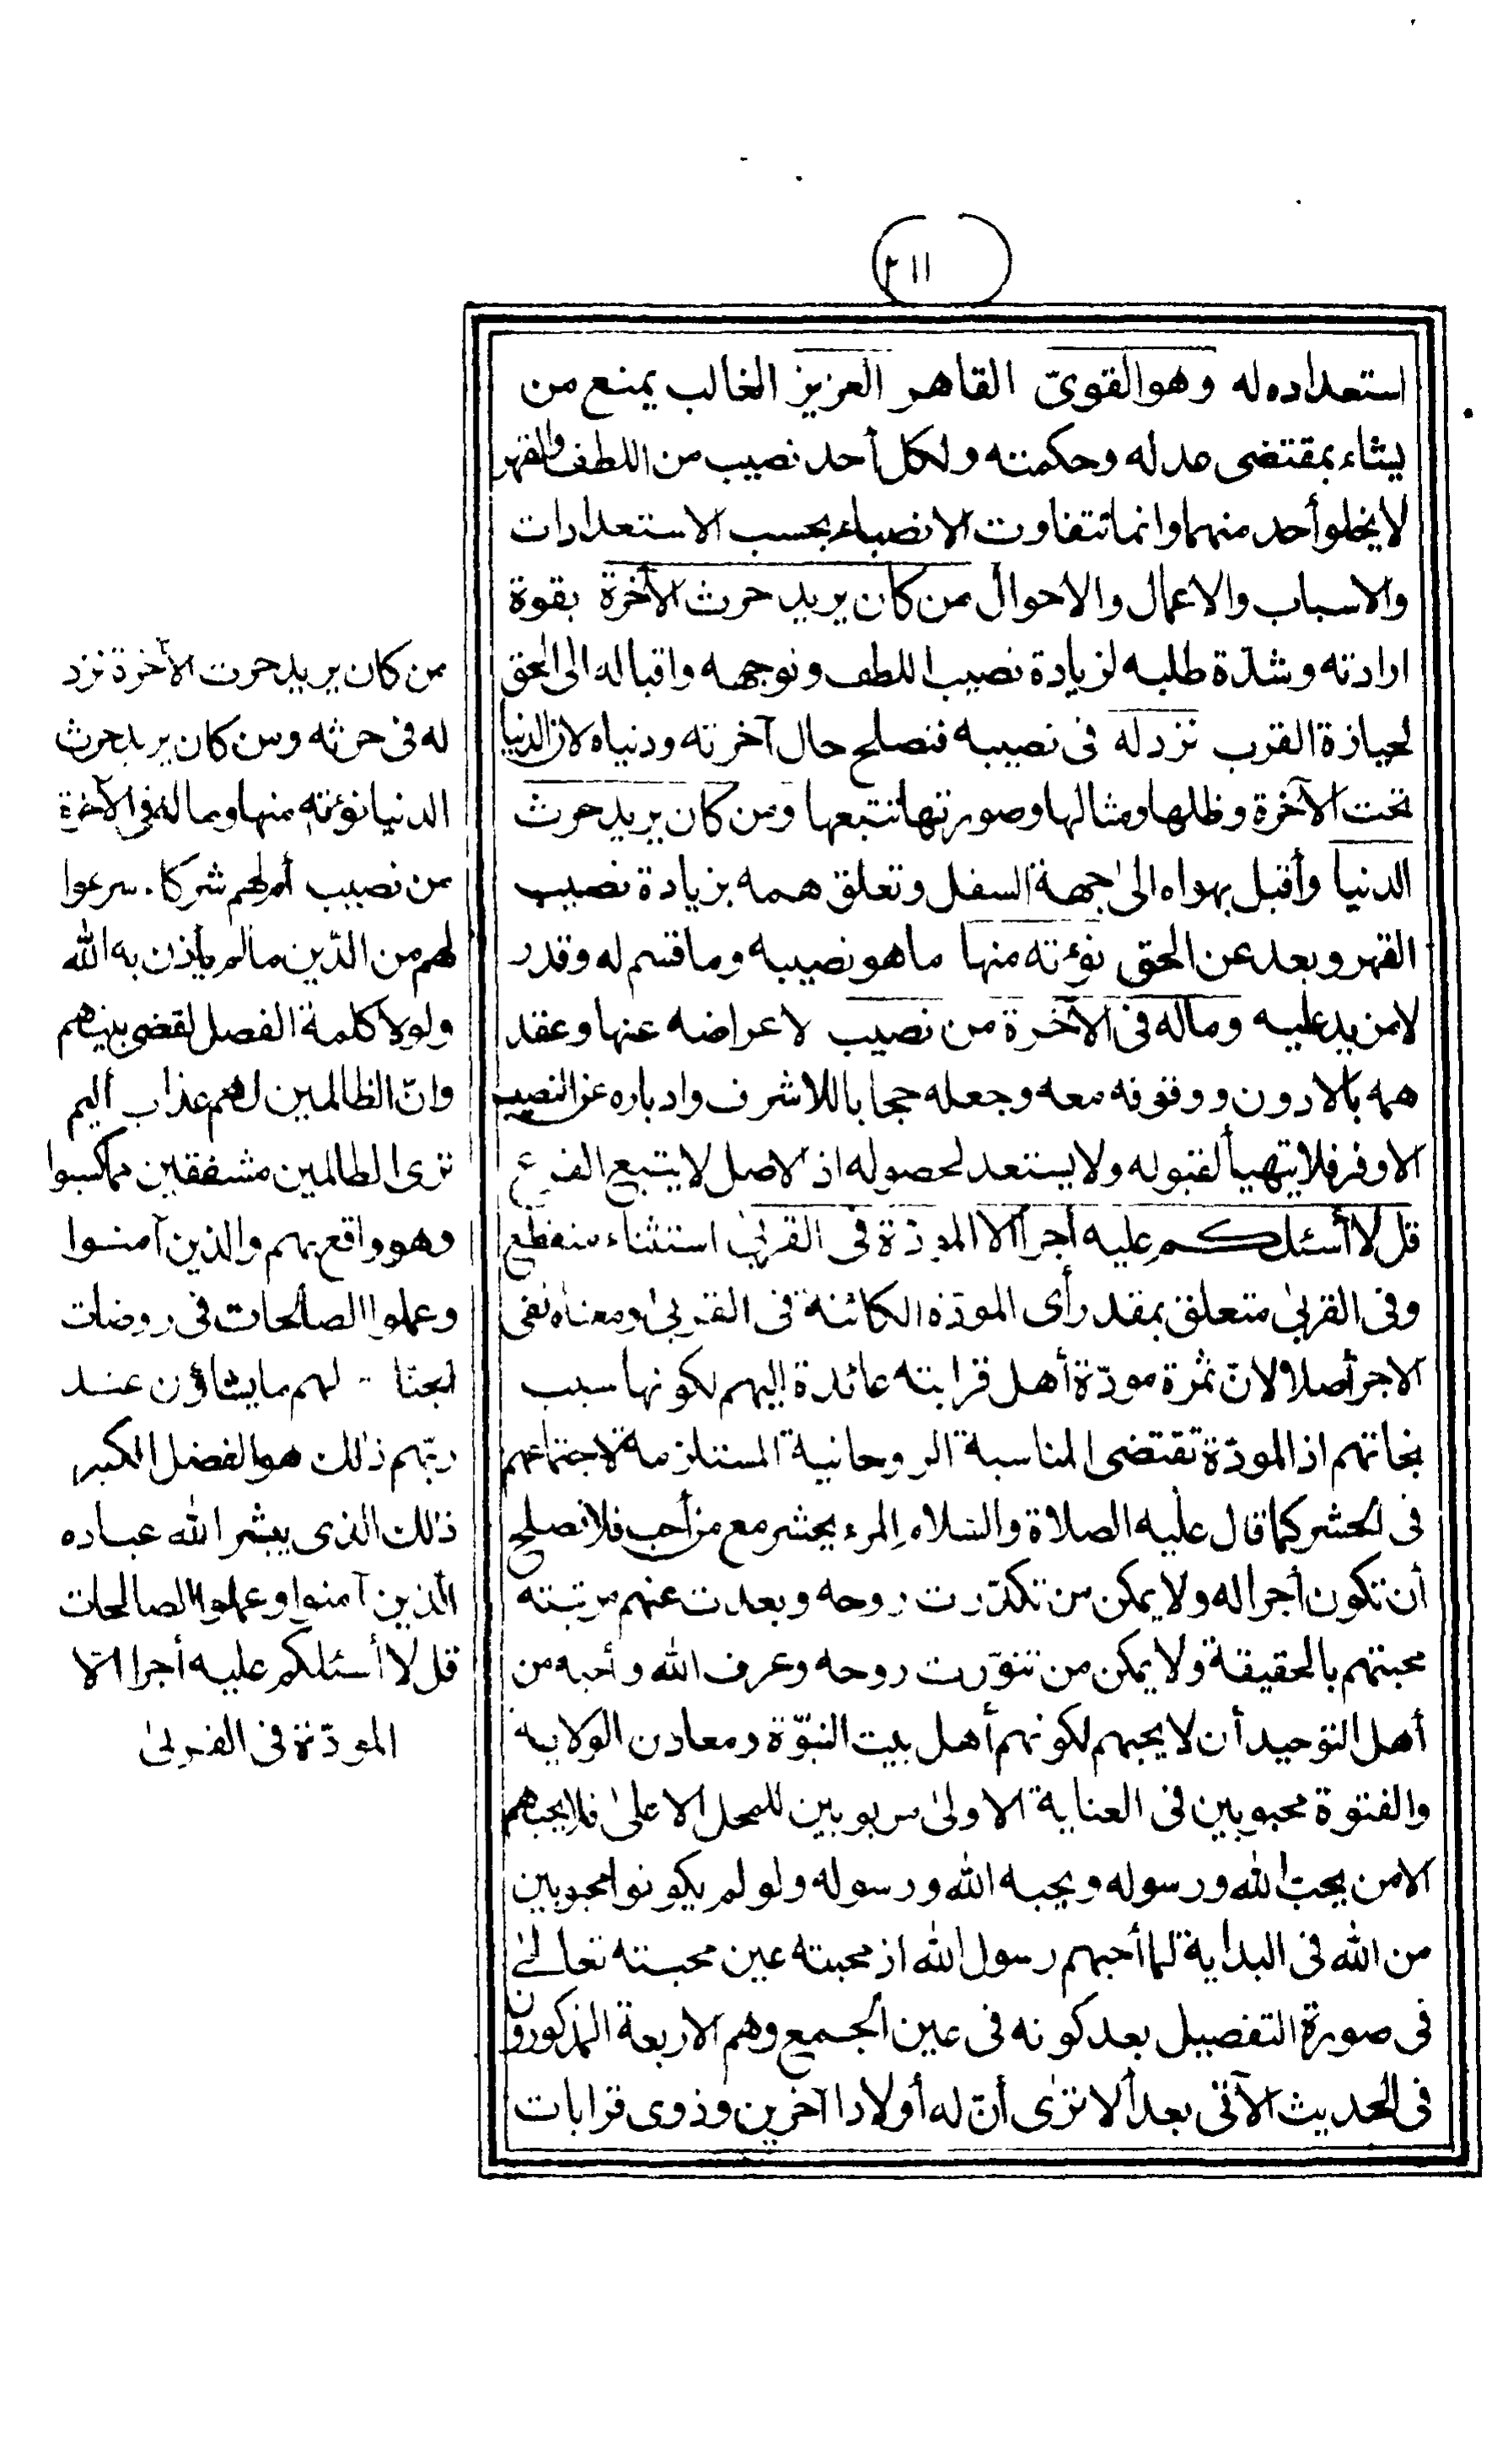 ٢١١
استعداده له وهو القوىّ القاهر العزيز الغالب يمنع من
يشاء بمقتضى عدله وحكمته ولكل أحد نصيب من اللطف والقهر
لا يخلو أحد منهما وانما تتفاوت الانصباء بحسب الاستعدادات
والاسباب والاعمال والاحوال من كان يريد حرث الآخرة بقوة
ارادته وشدّة طلبه لزيادة نصيب اللطف وتوجهه واقباله الى الحق
لحيازة القرب نزد له فى نصيبه فتصلح حال آخرته ودنياه لان الدنيا
تحت الآخرة وظلها ومثالها وصورتها تتبعها ومن كان يريد حرث
الدنيا وأقبل بهواه الى جهة السفل وتعلق همه بزيادة نصيب
القهر وبعد عن الحق نؤته منها ما هو نصيبه وما قسم له وقدر
لا مزيد عليه وماله فى الآخرة من نصيب لاعراضه عنها وعقد
همه بالادون ووقوفه معه وجعله حجابا للاشرف وادباره عن النصيب
الاوفر فلا يتهيأ لقبوله ولا يستعد لحصوله اذ الاصل لا يتبع الفرع
قل لا أسئلكم عليه أجرا الا المودّة فى القربى استثناء منقطع
وفى القربى متعلق بمقدر أى المودّة الكائنة فى القربى ومعناه نفى
الاجر أصلا لانّ ثمرة مودّة أهل قرابته عائدة إليهم لكونها سبب
نجاتهم اذ المودّة تقتضى المناسبة الروحانية المستلزمة لاجتماعهم
فى الحشر كما قال عليه الصلاة والسلام المرء يحشر مع من أحب فلا تصلح
أن تكون أجرا له ولا يمكن من تكدّرت روحه وبعدت عنهم مرتبته
محبتهم بالحقيقة ولا يمكن من تنوّرت روحه وعرف الله وأحبه من
أهل التوحيد أن لا يحبهم لكونهم أهل بيت النبوّة ومعادن الولاية
والفتوة محبوبين فى العناية الاولى مربوبين للمحل الاعلى فلا يحبهم
الا من يحب الله ورسوله ويحبه الله ورسوله ولو لم يكونوا محبوبين
من الله فى البداية لما أحبهم رسول الله اذ محبته عين محبته تعالى
فى صورة التفصيل بعد كونه فى عين الجمع وهم الاربعة المذكورون
فى الحديث الآتى بعد ألا ترى أنّ له أولادا آخرين وذوى قرابات
من كان يريد حرث الآخرة نزد
له فى حرثه ومن كان يريد حرث
الدنيا نؤته منها وماله فى الآخرة
من نصيب أم لهم شركاء شرعوا
لهم من الدّين ما لم يأذن به الله
ولولا كلمة الفصل لقضى بينهم
وانّ الظالمين لهم عذاب أليم
ترى الظالمين مشفقين مما كسبوا
وهو واقع بهم والذين آمنوا
وعملوا الصالحات فى روضات
الجنات لهم ما يشاؤن عند
ربّهم ذلك هو الفضل الكبير
ذلك الذى يبشر الله عباده
الذين آمنوا وعملوا الصالحات
قل لا أسئلكم عليه أجرا الّا
المودّة فى القربى